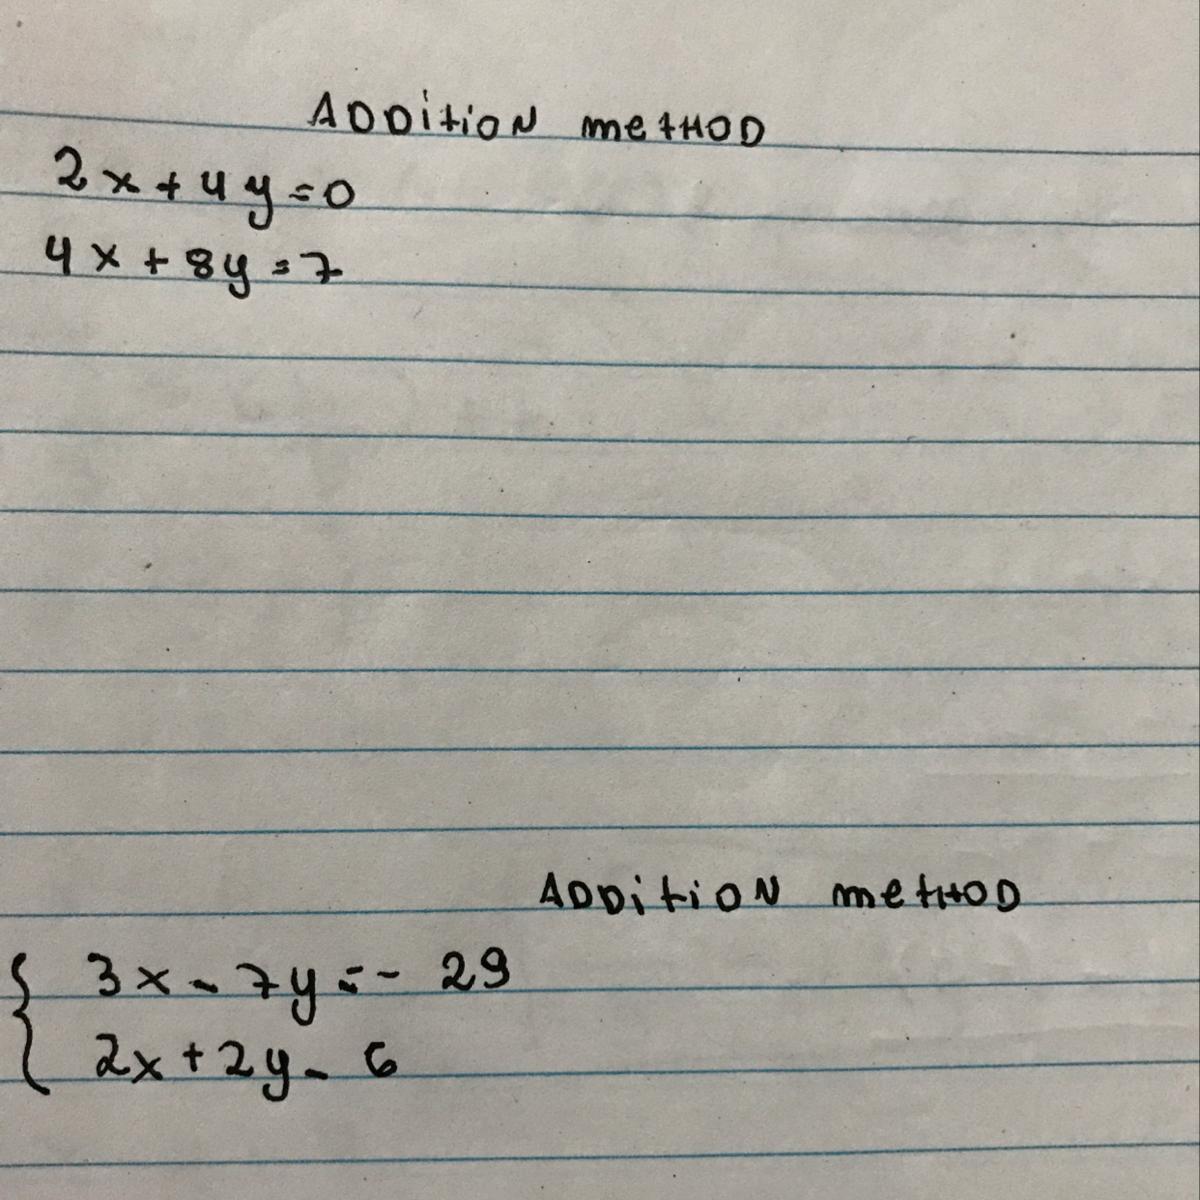 ADDition metHOD
2x + 4y = 0
4x + 8y = 7
ADDition metHOD
3x - 7y = - 29
2x + 2y - 6